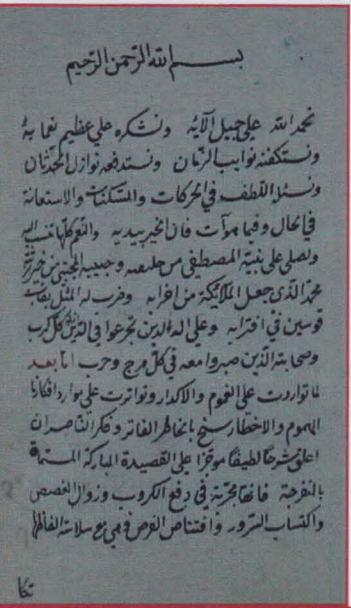 بسم الله الرحمن الرحيم
نحمد الله على جميل الآئه ونشكره على عظيم نعمائه
ونستكفيه نوايب الزمان ونستدفعه نوازل الحدثان
ونسئله اللطف في الحركات والسكنات والاستعانة
في الحال وفيما هو آت فان الخير بيديه والنعم كلها تنسب اليه
ونصلي على نبيه المصطفى من خليقته وحبيبه المجتبى من
محمد الذي جعل الملائكة من احزابه وضرب له المثل بقاب
قوسين في اقترابه وعلى اله الذين تجرعوا في الدين كل كرب
وصحابته الذين صبروا معه في كل هرج وحرب اما بعد
لما تواردت على الغموم والاكدار وتواترت على بوارد افكارنا
الهموم والاخطار سنح بالخاطر الفاتر وفكر القاصر ان
اعلق شرحا لطيفا موجزا على القصيدة المباركة المسماة
بالمنفرجة فانها مجربة في دفع الكروب وزوال الغصص
واكتساب السرور واقتناص الفرص فهي مع سلاسة الفاظها